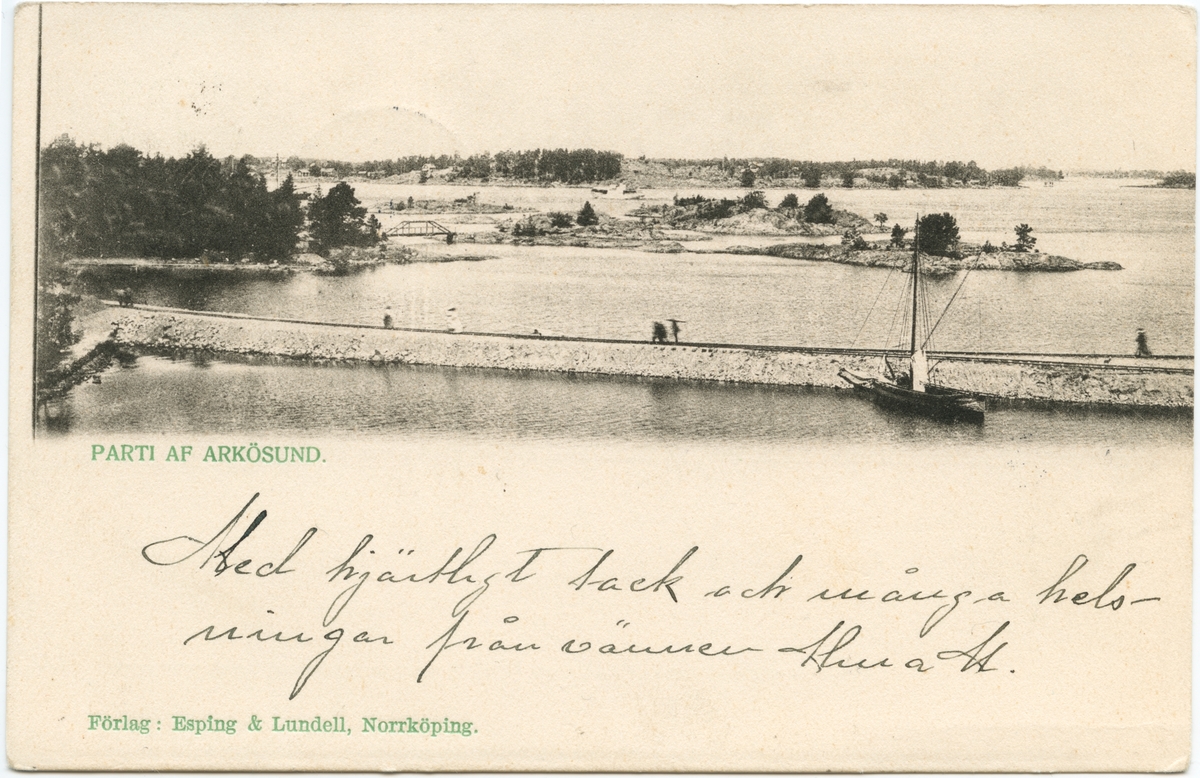 PARTI AF ARKÖSUND.
Med hjärtligt tack och många hels-
ningar från vännen Alma H.
Förlag: Esping & Lundell, Norrköping.